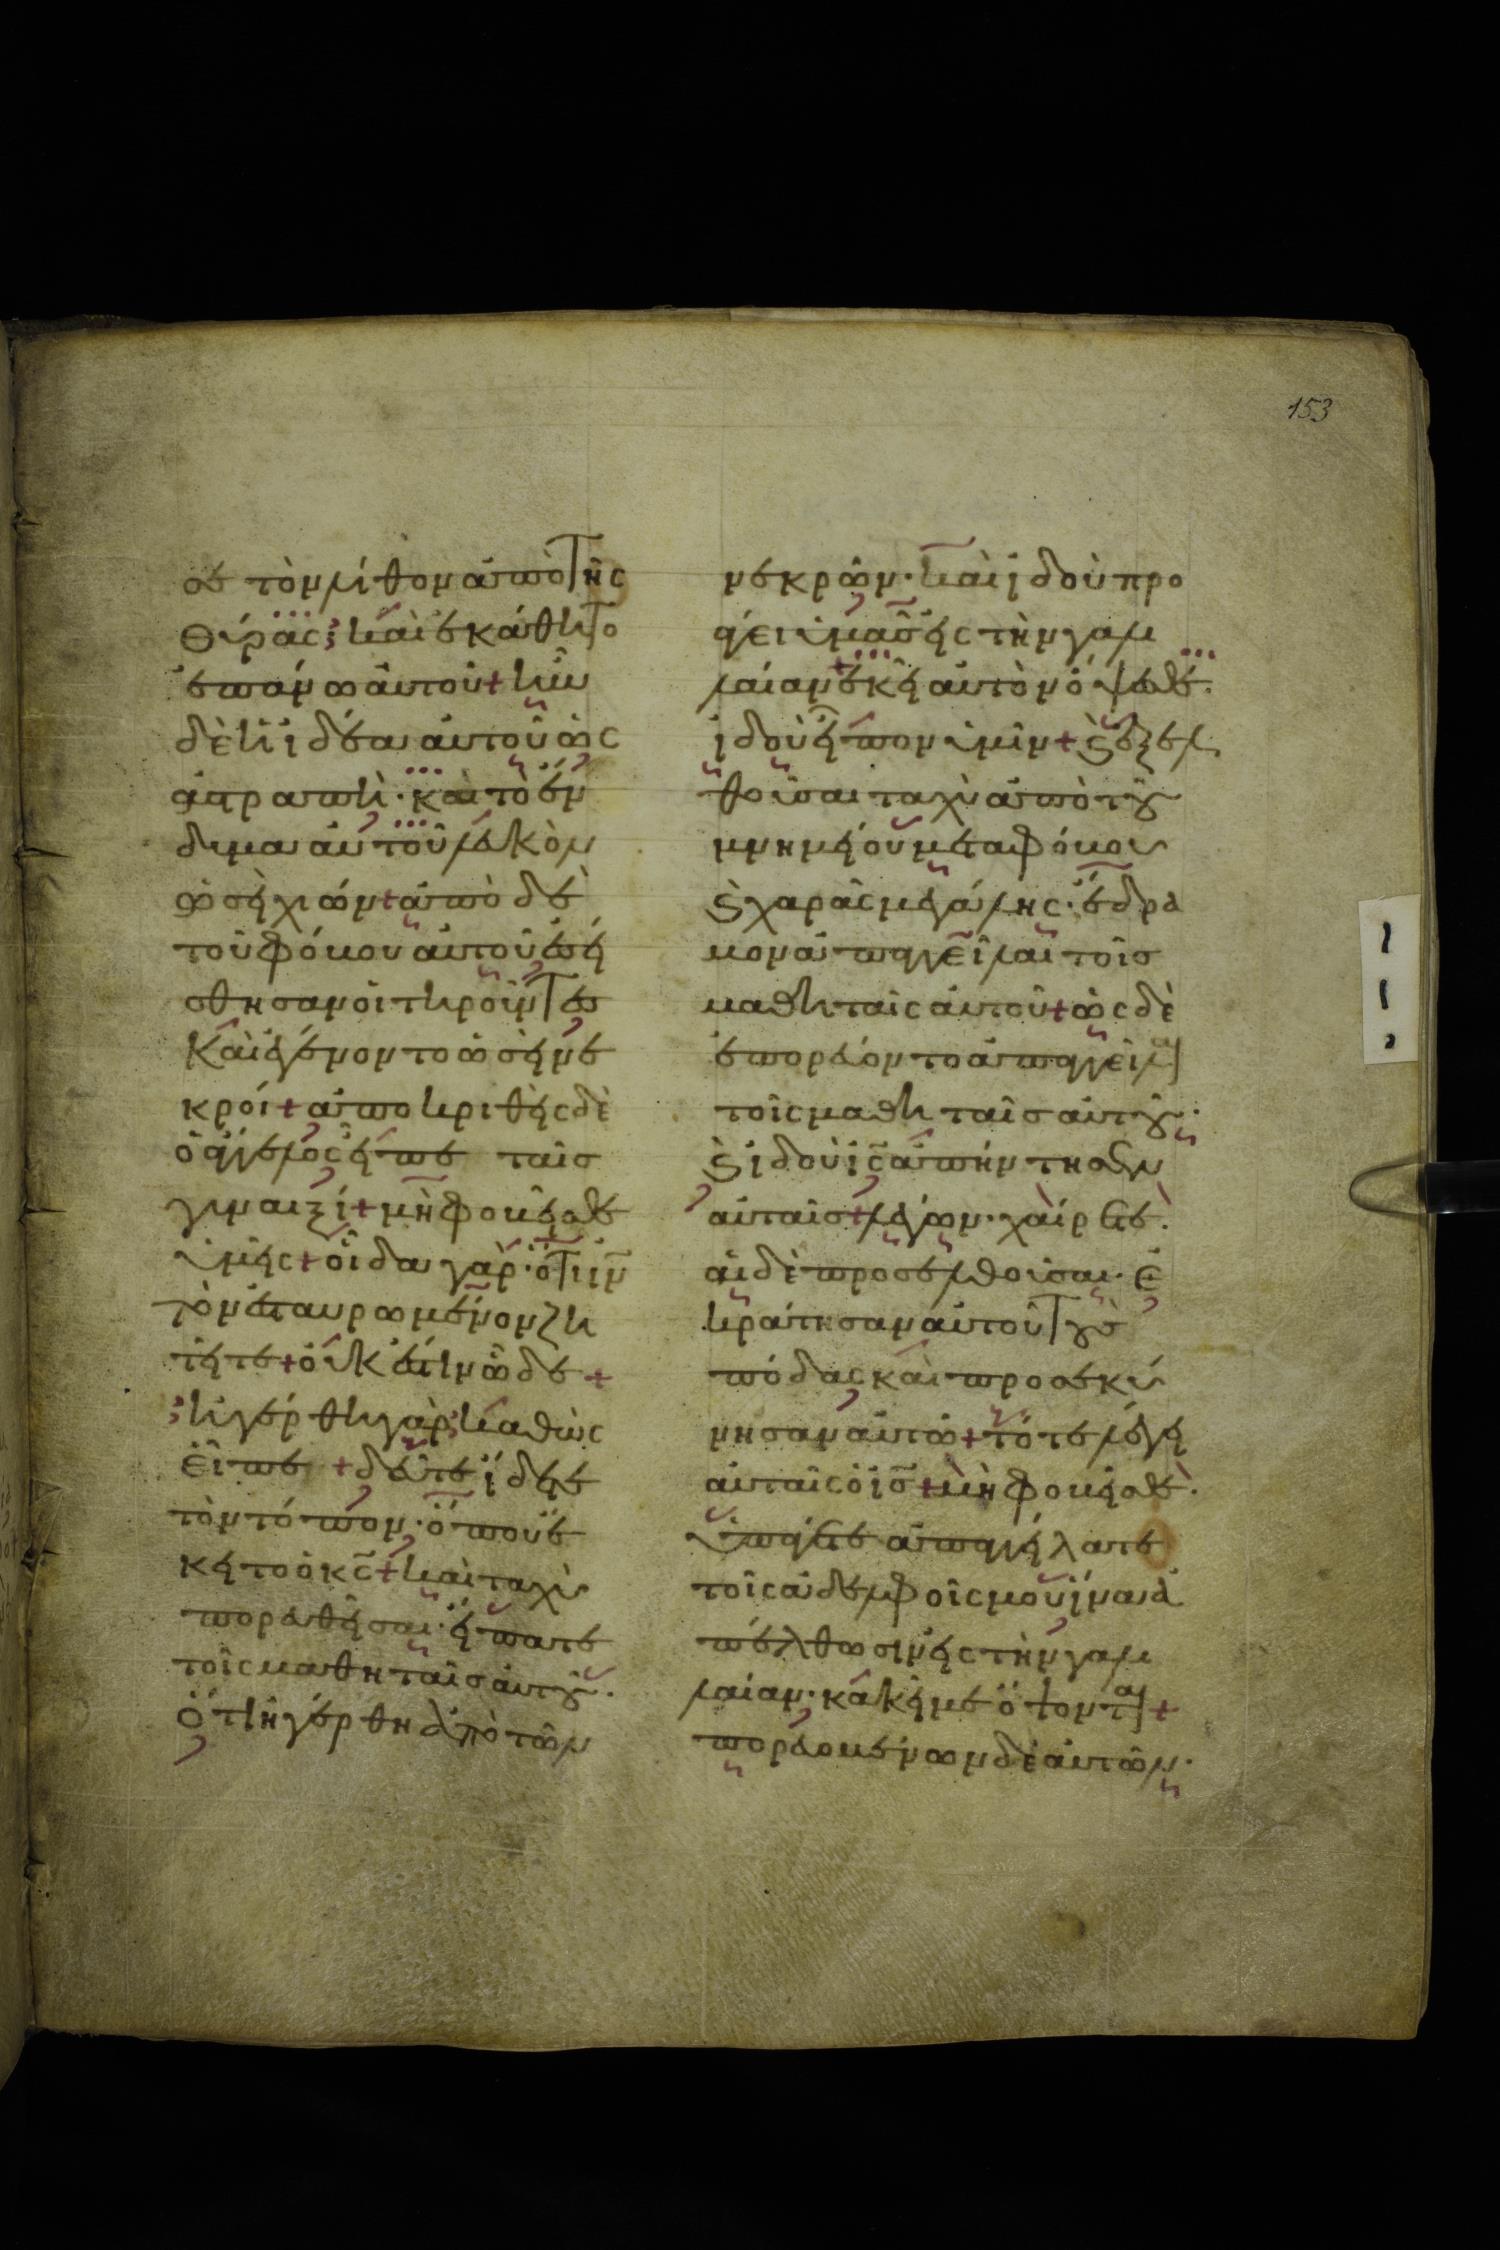 153
σε τὸν λίθον ἀπὸ τῆς
θύρας· καὶ ἐκάθητο
ἐπάνω αὐτοῦ + ἦν
δὲ ἡ ἰδέα αὐτοῦ ὡς
ἀστραπὴ· καὶ τὸ ἔν
δυμα αὐτοῦ λευκὸν
ὡσεὶ χιών + ἀπὸ δὲ
τοῦ φόβου αὐτοῦ ἐσεί
σθησαν οἱ τηροῦντες
καὶ ἐγένοντο ὡσεὶ νε
κροί + ἀποκριθεὶς δὲ
ὁ ἄγγελος εἶπε ταῖς
γυναιξί + μὴ φοβεῖσθε
ὑμεῖς + οἶδα γὰρ· ὅτι ιν
τὸν ἐσταυρωμένον ζη
τεῖτε + οὐκ ἔστιν ὧδε +
ἠγέρθη γὰρ καθὼς
εἶπε + δεῦτε ἴδετε
τὸν τόπον· ὅπου ἔ
κειτο ὁ κς + καὶ ταχὺ
πορευθεῖσαι· εἴπατε
τοῖς μαθηταῖς αὐτοῦ·
ὅτι ἠγέρθη ἀπὸ τῶν
νεκρῶν· καὶ ἰδοὺ προ
άγει ὑμᾶς εἰς τὴν γαλι
λαίαν + ἐκεῖ αὐτὸν ὄψεσθε.
ἰδοὺ εἶπον ὑμῖν + καὶ ἐξελ
θοῦσαι ταχὺ ἀπὸ τοῦ
μνημείου μετὰ φόβου
καὶ χαρᾶς μεγάλης· ἔδρα
μον ἀπαγγεῖλαι τοῖς
μαθηταῖς αὐτοῦ + ὡς δὲ
ἐπορεύοντο ἀπαγγεῖλαι
τοῖς μαθηταῖς αὐτοῦ·
καὶ ἰδοὺ ις ἀπήντησεν
αὐταῖς + λέγων· χαίρετε.
αἱ δὲ προσελθοῦσαι· ἐ
κράτησαν αὐτοῦ τοὺς
πόδας καὶ προσεκύ
νησαν αὐτῶ + τότε λέγει
αὐταῖς ὁ ις + μὴ φοβεῖσθε·
ὑπάγετε ἀπαγγείλατε
τοῖς ἀδελφοῖς μου ἵνα ἀ
πέλθωσιν εἰς τὴν γαλι
λαίαν· κἀκεῖ με ὄψονται +
πορευομένων δὲ αὐτῶν·